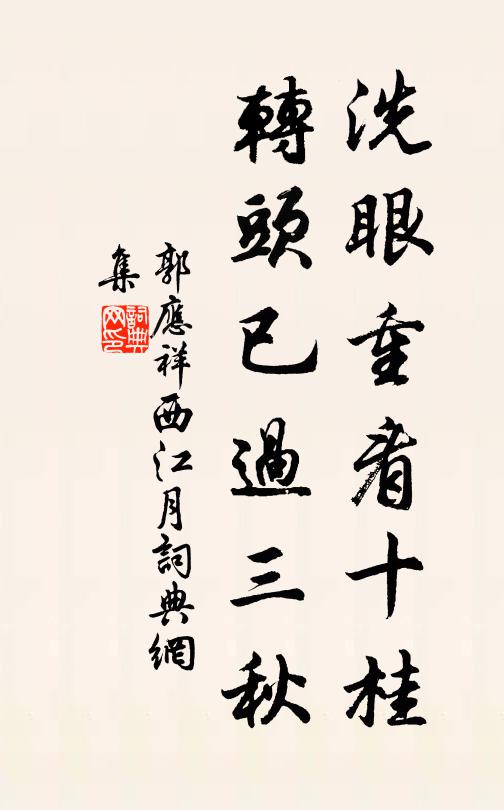 洗眼重看十桂
轉頭已過三秋
郭應祥西江月詞典網
集
詞典网印